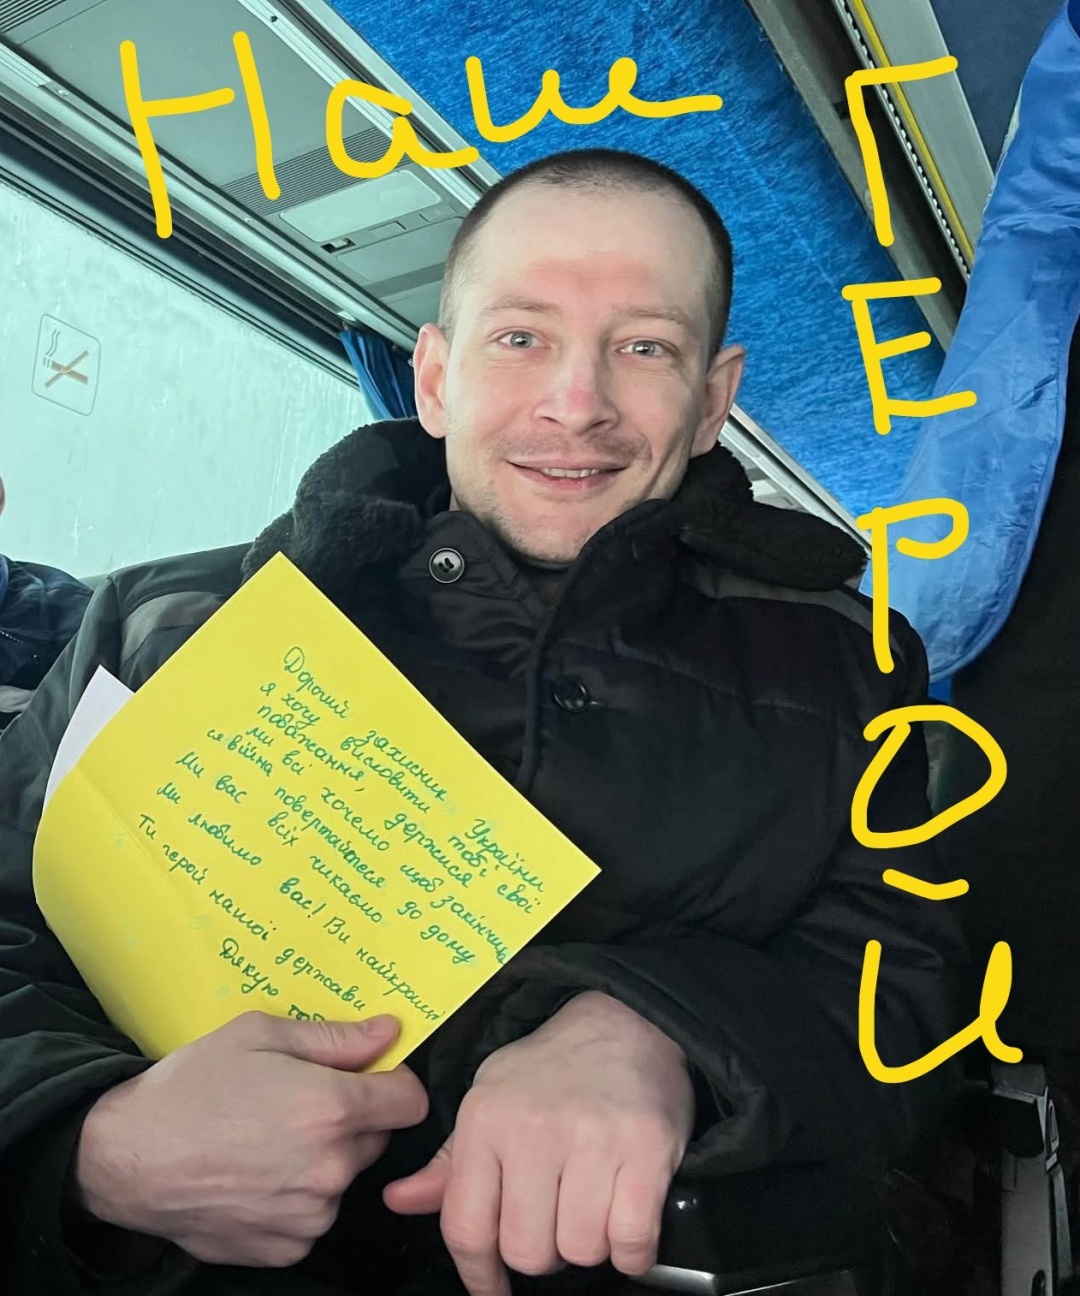 Наш
ГЕРОЙ
Дорогий захисник України
я хочу висловити тобі свої
побажання, держися
ми всі хочемо щоб закінчила
ся війна повертайтеся до дому
Ми вас всіх чикаємо
Ми любимо вас! Ви найкращі
Ти герой нашої держави
Дякую тоб